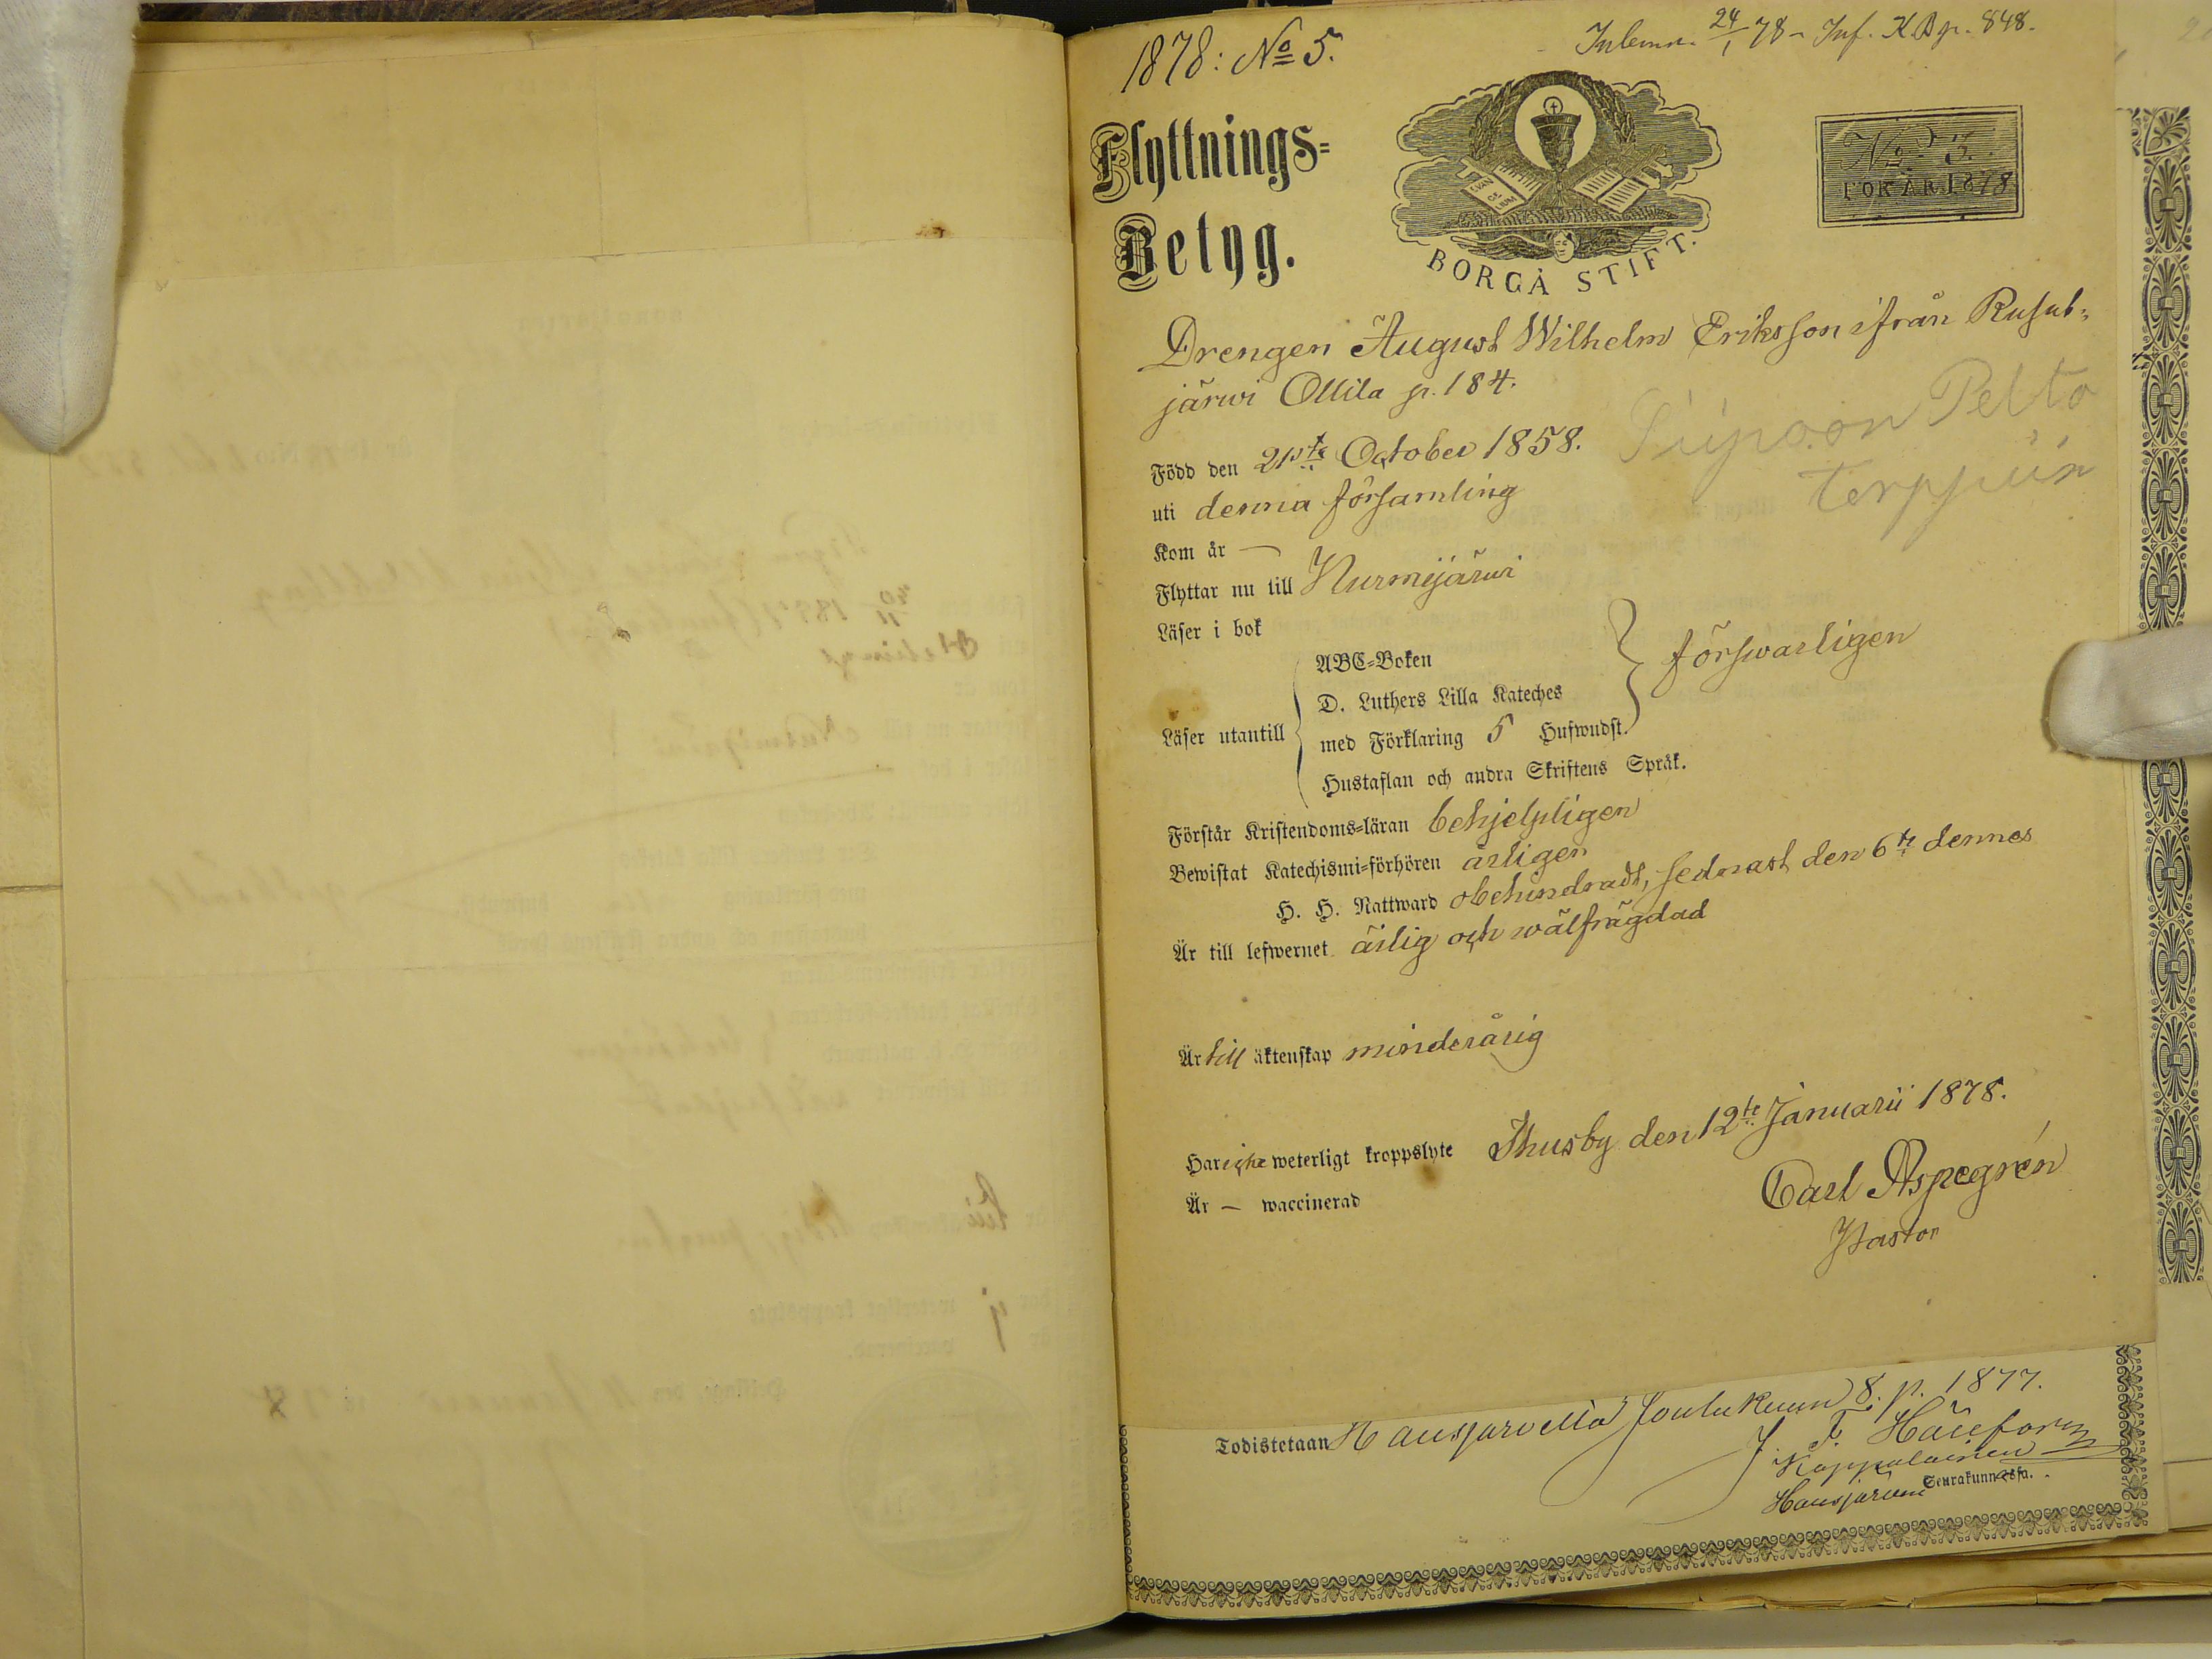 1878: No 5.
Inlemn. 24/1 78 - Inf. K.B. p. 848.
Flyttnings=
Betyg.
EVAN
GE
LIUM
BORGÅ STIFT.
No 3.
FÖR ÅR 1878
Drengen August Wilhelm Eriksson ifrån Rusut=
järwi Ollila p. 184.
Född den 21ste October 1858.
uti denna församling
Pelto
Kom år —
Flyttar nu till Nurmijärwi
Läser i bok
Läser utantill
ABC=Boken
D. Luthers Lilla Kateches
med Förklaring 5 Hufwudst.
Hustaflan och andra Skriftens Språk.
förswarligen
Förstår Kristendoms=läran behjelpligen
Bewistat Katechismi=förhören årligen
H. H. Nattward obehindradt, sednast den 6te dennes
Är till lefwernet ärlig och wälfrägdad
Är till äktenskap minderårig
Har icke weterligt kroppslyte
Thusby den 12te Januarii 1878.
Är — waccinerad
Carl Aspegrén
Pastor
Todistetaan Hausjärvellä Joulukuun 8. p. 1877.
J. F.
Kappalainen
Hausjärven Seurakunnassa.